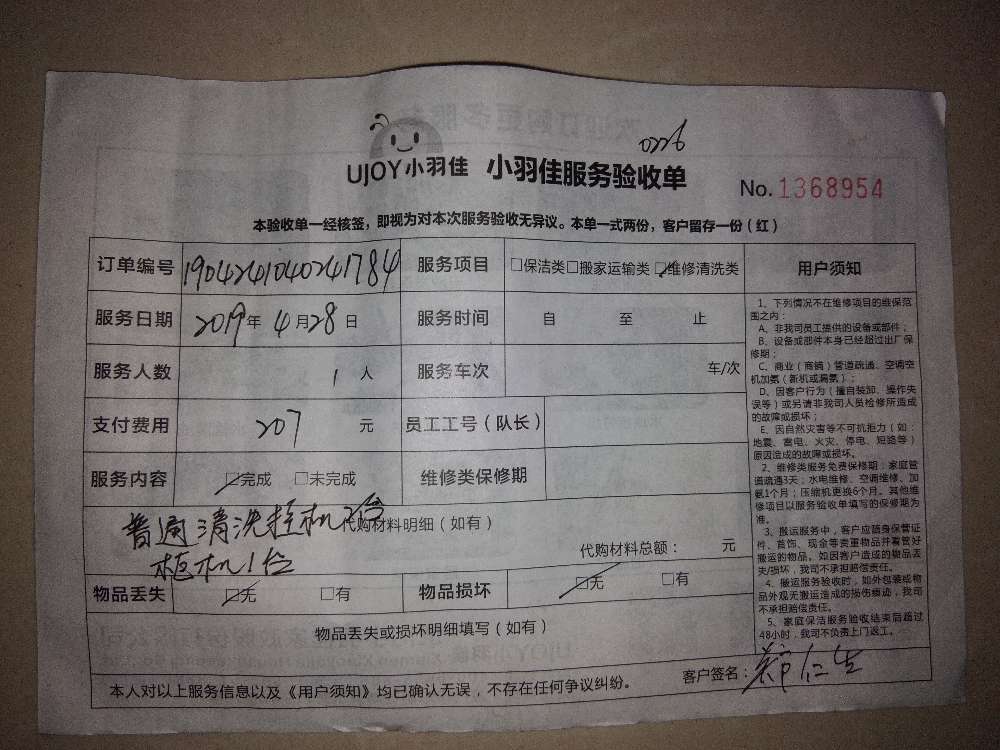 0226
UJOY小羽佳 小羽佳服务验收单
No.1368954
本验收单一经核签，即视为对本次服务验收无异议。本单一式两份，客户留存一份（红）
订单编号 190424104024 1784 服务项目 □保洁类□搬家运输类☑维修清洗类 用户须知
服务日期 2019年4月28日 服务时间 自 至 止
服务人数 1人 服务车次 车/次
支付费用 207 元 员工工号（队长）
服务内容 ☑完成 □未完成 维修类保修期
普通清洗挂机2台
代购材料明细（如有）
柜机1台
代购材料总额： 元
物品丢失 ☑无 □有 物品损坏 ☑无 □有
物品丢失或损坏明细填写（如有）
本人对以上服务信息以及《用户须知》均已确认无误，不存在任何争议纠纷。
客户签名：
1、下列情况不在维修项目的维保范
围之内：
A、非我司员工提供的设备或部件；
B、设备或部件本身已经超过出厂保
修期；
C、商业（商铺）管道疏通、空调空
机加氨（新机或漏氨）；
D、因客户行为（擅自装卸、操作失
误等）或另请非我司人员检修所造成
的故障或损坏；
E、因自然灾害等不可抗拒力（如：
地震、雷电、火灾、停电、短路等）
原因造成的故障或损坏。
2、维修类服务免费保修期：家庭管
道疏通3天；水电维修、空调维修、加
氨1个月；压缩机更换6个月。其他维
修项目以服务验收单填写的保修期为
准。
3、搬运服务中，客户应随身保管证
件、首饰、现金等贵重物品并看管好
搬运的物品。如因客户造成的物品丢
失/损坏，我司不承担赔偿责任。
4、搬运服务验收时，如外包装或物
品外观无搬运造成的损伤痕迹，我司
不承担赔偿责任。
5、家庭保洁服务验收结束后超过
48小时，我司不负责上门返工。